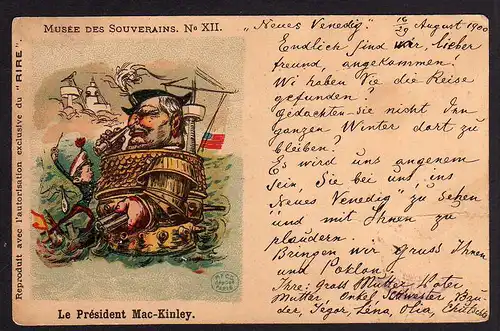 MUSÉE DES SOUVERAINS. No XII.
Reproduit avec l'autorisation exclusive du "RIRE".
Le Président Mac-Kinley.
"Neues Venedig" 16/29 August 1900
Endlich sind wir, lieber
freund, angekommen!
Wi haben Sie die Reise
gefunden?
Gedachten sie nicht Inn
ganzen Winter dort zu
bleiben?
Es wird uns angenem
sein, Sie bei uns, ins
Neues Venedig" zu sehen
und mit Ihnen zu
plaudern
Bringen wir Gruss Ihnen
und Poklon.
Ihre: gross Mutter, Vater
Mutter, Onkel Schwester
der, Jegor, Lena, Olia,